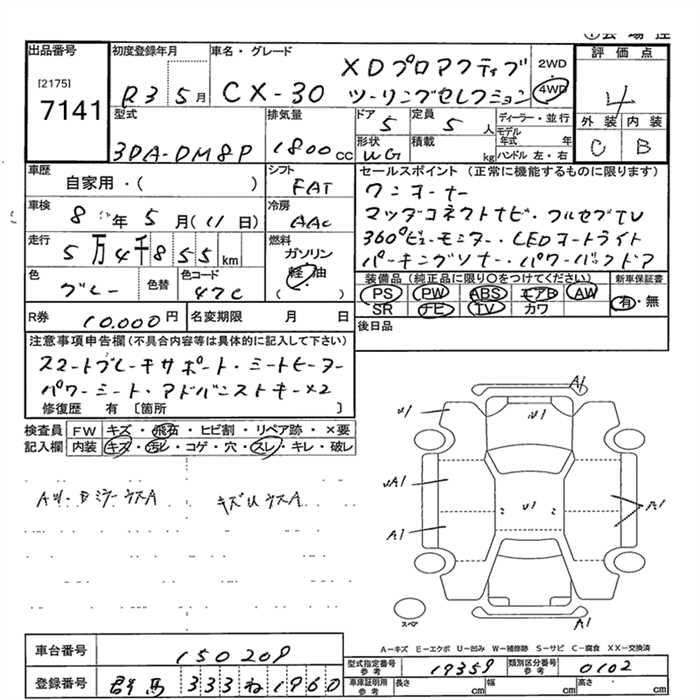 出品番号
[2175]
7141
初度登録年月
R3 5月
車名・グレード
CX-30
XDプロアクティブ
ツーリングセレクション
2WD
4WD
評価点
4
外装 内装
C B
型式
3DA-DM8P
排気量
1800cc
ドア
5
定員
5人
形状
WG
積載
kg
ディーラー・並行
モデル年式 年
ハンドル 左・右
車歴
自家用・( )
シフト
FAT
車検
8年5月(11日)
冷房
AAC
走行
5万4千855km
燃料
ガソリン
軽油
色
グレー
色替
色コード
47C
R券
10,000円
名変期限 月 日
セールスポイント(正常に機能するものに限ります)
ワンオーナー
マツダコネクトナビ・フルセグTV
360°ビューモニター・LEDオートライト
パーキングソナー・パワーバックドア
装備品(純正品に限り○をつけてください)
新車保証書
PS PW ABS エアB AW
SR ナビ TV カワ
有・無
後日品
注意事項申告欄(不具合内容等は具体的に記入して下さい)
スマートブレーキサポート・シートヒーター
パワーシート・アドバンストキー×2
修復歴 有〔箇所 〕
検査員記入欄
FW キズ・飛石・ヒビ割・リペア跡・×要
内装 キズ・汚レ・コゲ・穴・スレ・キレ・破レ
A1
U1
U1
UA1
U1
A1
A1
A1
スペア
A-キズ E-エクボ U-凹み W-補修跡 S-サビ C-腐食 XX-交換済
車台番号
150209
登録番号
群馬 333ね1960
型式指定番号 参考
19359
類別区分番号 参考
0102
車庫証明用 参考
長さ cm
幅 cm
高さ cm